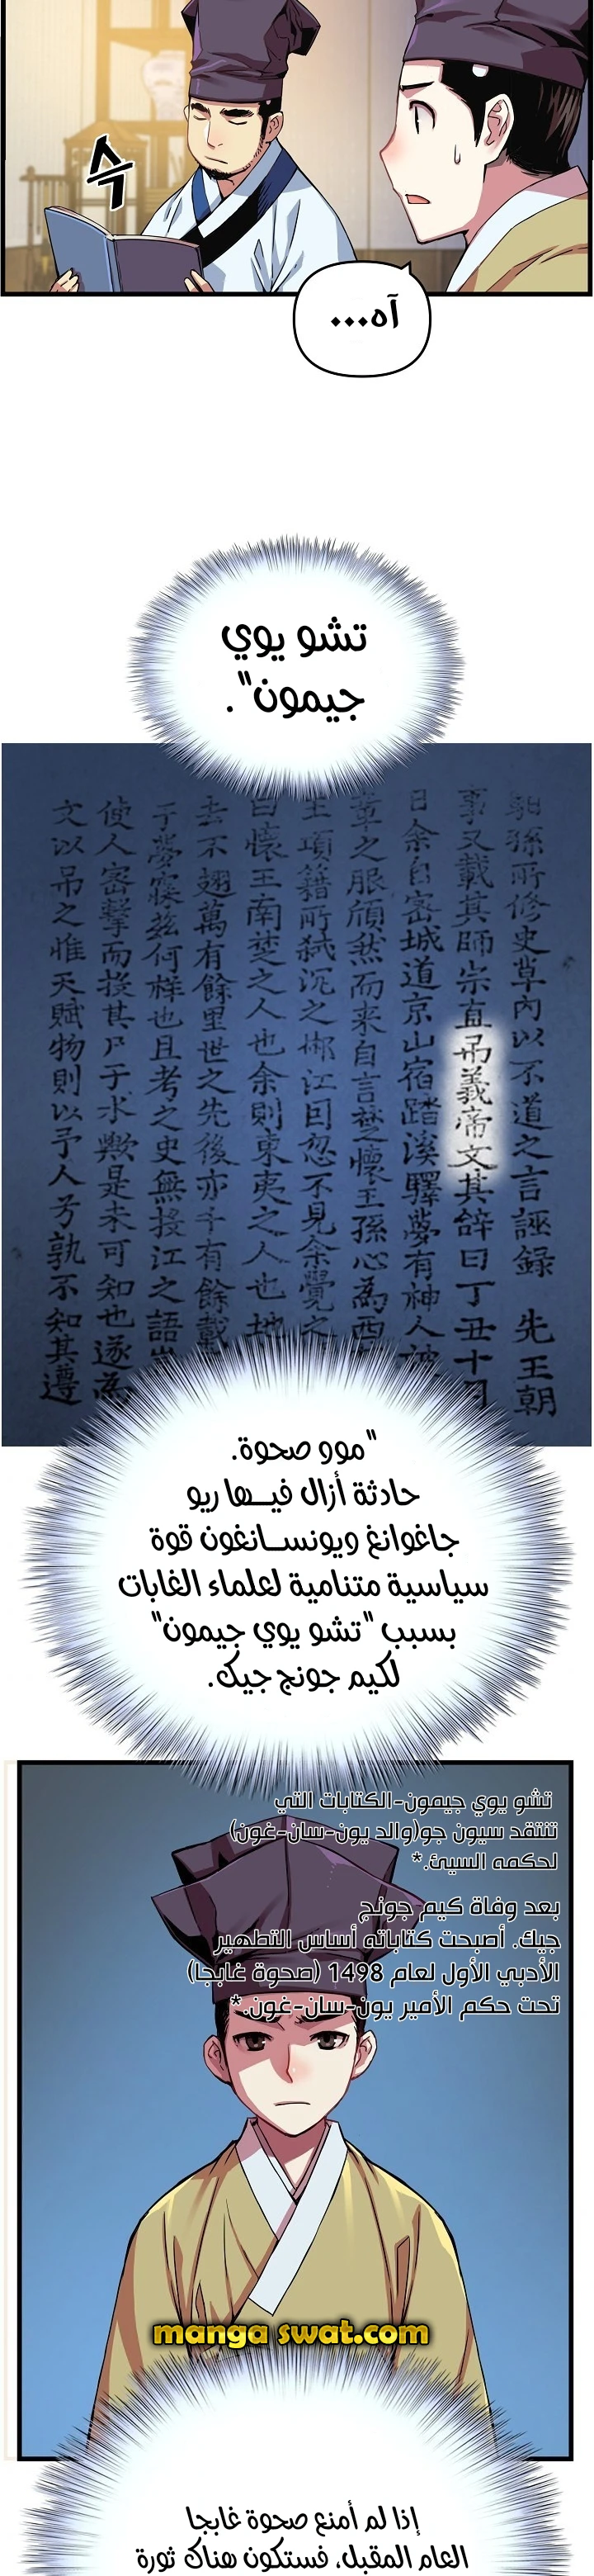 슥
آه...
تشو يوي
جيمون".
朝孫所修史草內以不道之言誣錄 先王朝
事又載其師宗直弔義帝文其辭曰丁丑十月
日余自密城道京山宿踏溪驛夢有神人被
章之服頎然而来自言楚懷王孫心為西
王項籍所弑沉之郴江因忽不見余覺之
曰懷王南楚之人也余則東夷之人也地
去不翅萬有餘里世之先後亦千有餘載
于夢寐玆何祥也且考之史無投江之語
使人密擊而投其尸于水歟是未可知也遂為
文以吊之惟天賦物則以予人兮孰不知其遵
"موو صحوة.
حادثة أزال فيها ريو
جاغوانغ ويونسانغون قوة
سياسية متنامية لعلماء الغابات
بسبب "تشو يوي جيمون"
لكيم جونج جيك.
تشو يوي جيمون-الكتابات التي
تنتقد سيون جو(والد يون-سان-غون)
لحكمه السيئ.*
بعد وفاة كيم جونج
جيك. أصبحت كتاباته أساس التطهير
الأدبي الأول لعام 1498 (صحوة غابجا)
تحت حكم الأمير يون-سان-غون.*
manga swat.com
إذا لم أمنع صحوة غابجا
العام المقبل، فستكون هناك ثورة